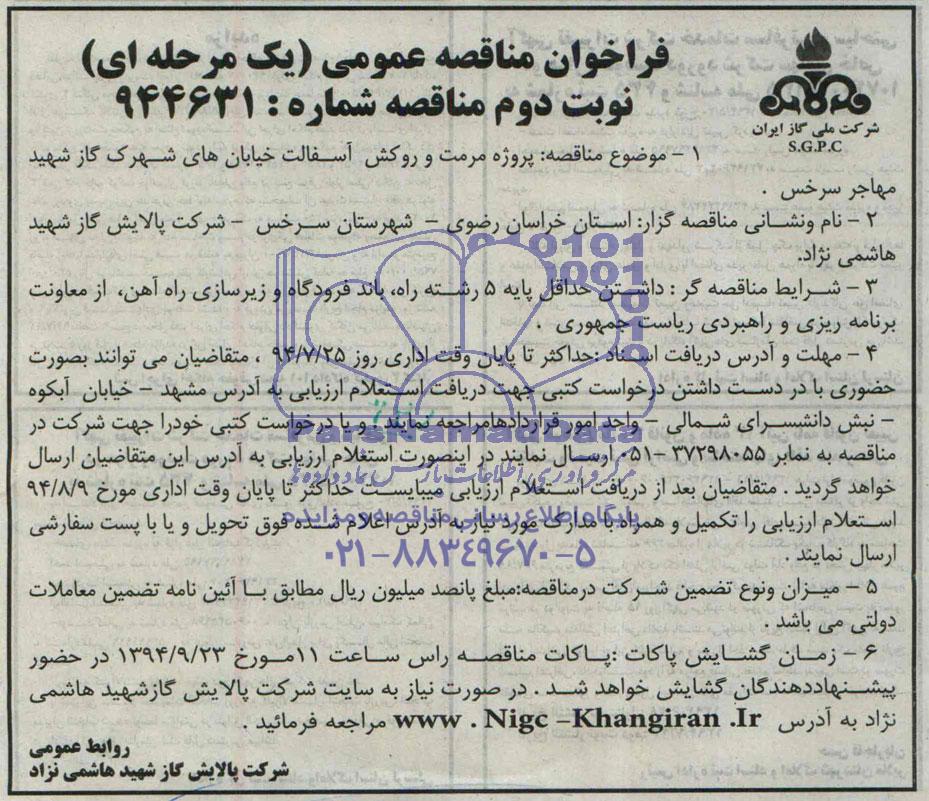 فراخوان مناقصه عمومی (یک مرحله ای)
نوبت دوم مناقصه شماره : ۹۴۴۶۳۱
شرکت ملی گاز ایران
S.G.P.C
۱ – موضوع مناقصه: پروژه مرمت و روکش آسفالت خیابان های شهرک گاز شهید
مهاجر سرخس .
۲ – نام ونشانی مناقصه گزار: استان خراسان رضوی – شهرستان سرخس – شرکت پالایش گاز شهید
هاشمی نژاد.
۳ – شرایط مناقصه گر : داشتن حداقل پایه ۵ رشته راه، باند فرودگاه و زیرسازی راه آهن، از معاونت
برنامه ریزی و راهبردی ریاست جمهوری .
۴ – مهلت و آدرس دریافت اسناد :حداکثر تا پایان وقت اداری روز ۹۴/۷/۲۵ ، متقاضیان می توانند بصورت
حضوری با در دست داشتن درخواست کتبی جهت دریافت استعلام ارزیابی به آدرس مشهد - خیابان آبکوه
– نبش دانشسرای شمالی – واحد امور قراردادهامراجعه نمایند و یا درخواست کتبی خودرا جهت شرکت در
مناقصه به نمابر ۳۷۲۹۸۰۵۵ –۰۵۱ ارسال نمایند در اینصورت استعلام ارزیابی به آدرس این متقاضیان ارسال
خواهد گردید . متقاضیان بعد از دریافت استعلام ارزیابی میبایست حداکثر تا پایان وقت اداری مورخ ۹۴/۸/۹
استعلام ارزیابی را تکمیل و همراه با مدارک مورد نیاز به آدرس اعلام شده فوق تحویل و یا با پست سفارشی
ارسال نمایند .
۵ – میزان ونوع تضمین شرکت درمناقصه:مبلغ پانصد میلیون ریال مطابق با آئین نامه تضمین معاملات
دولتی می باشد .
۶ – زمان گشایش پاکات :پاکات مناقصه راس ساعت ۱۱مورخ ۱۳۹۴/۹/۲۳ در حضور
پیشنهاددهندگان گشایش خواهد شد . در صورت نیاز به سایت شرکت پالایش گازشهید هاشمی
نژاد به آدرس www . Nigc –Khangiran .Ir مراجعه فرمائید .
روابط عمومی
شرکت پالایش گاز شهید هاشمی نژاد
ParsNamadData
مرکز فرآوری اطلاعات پارس نماد داده ها
پایگاه اطلاع رسانی مناقصه و مزایده
۰۲۱–۸۸۳۴۹۶۷۰–۵